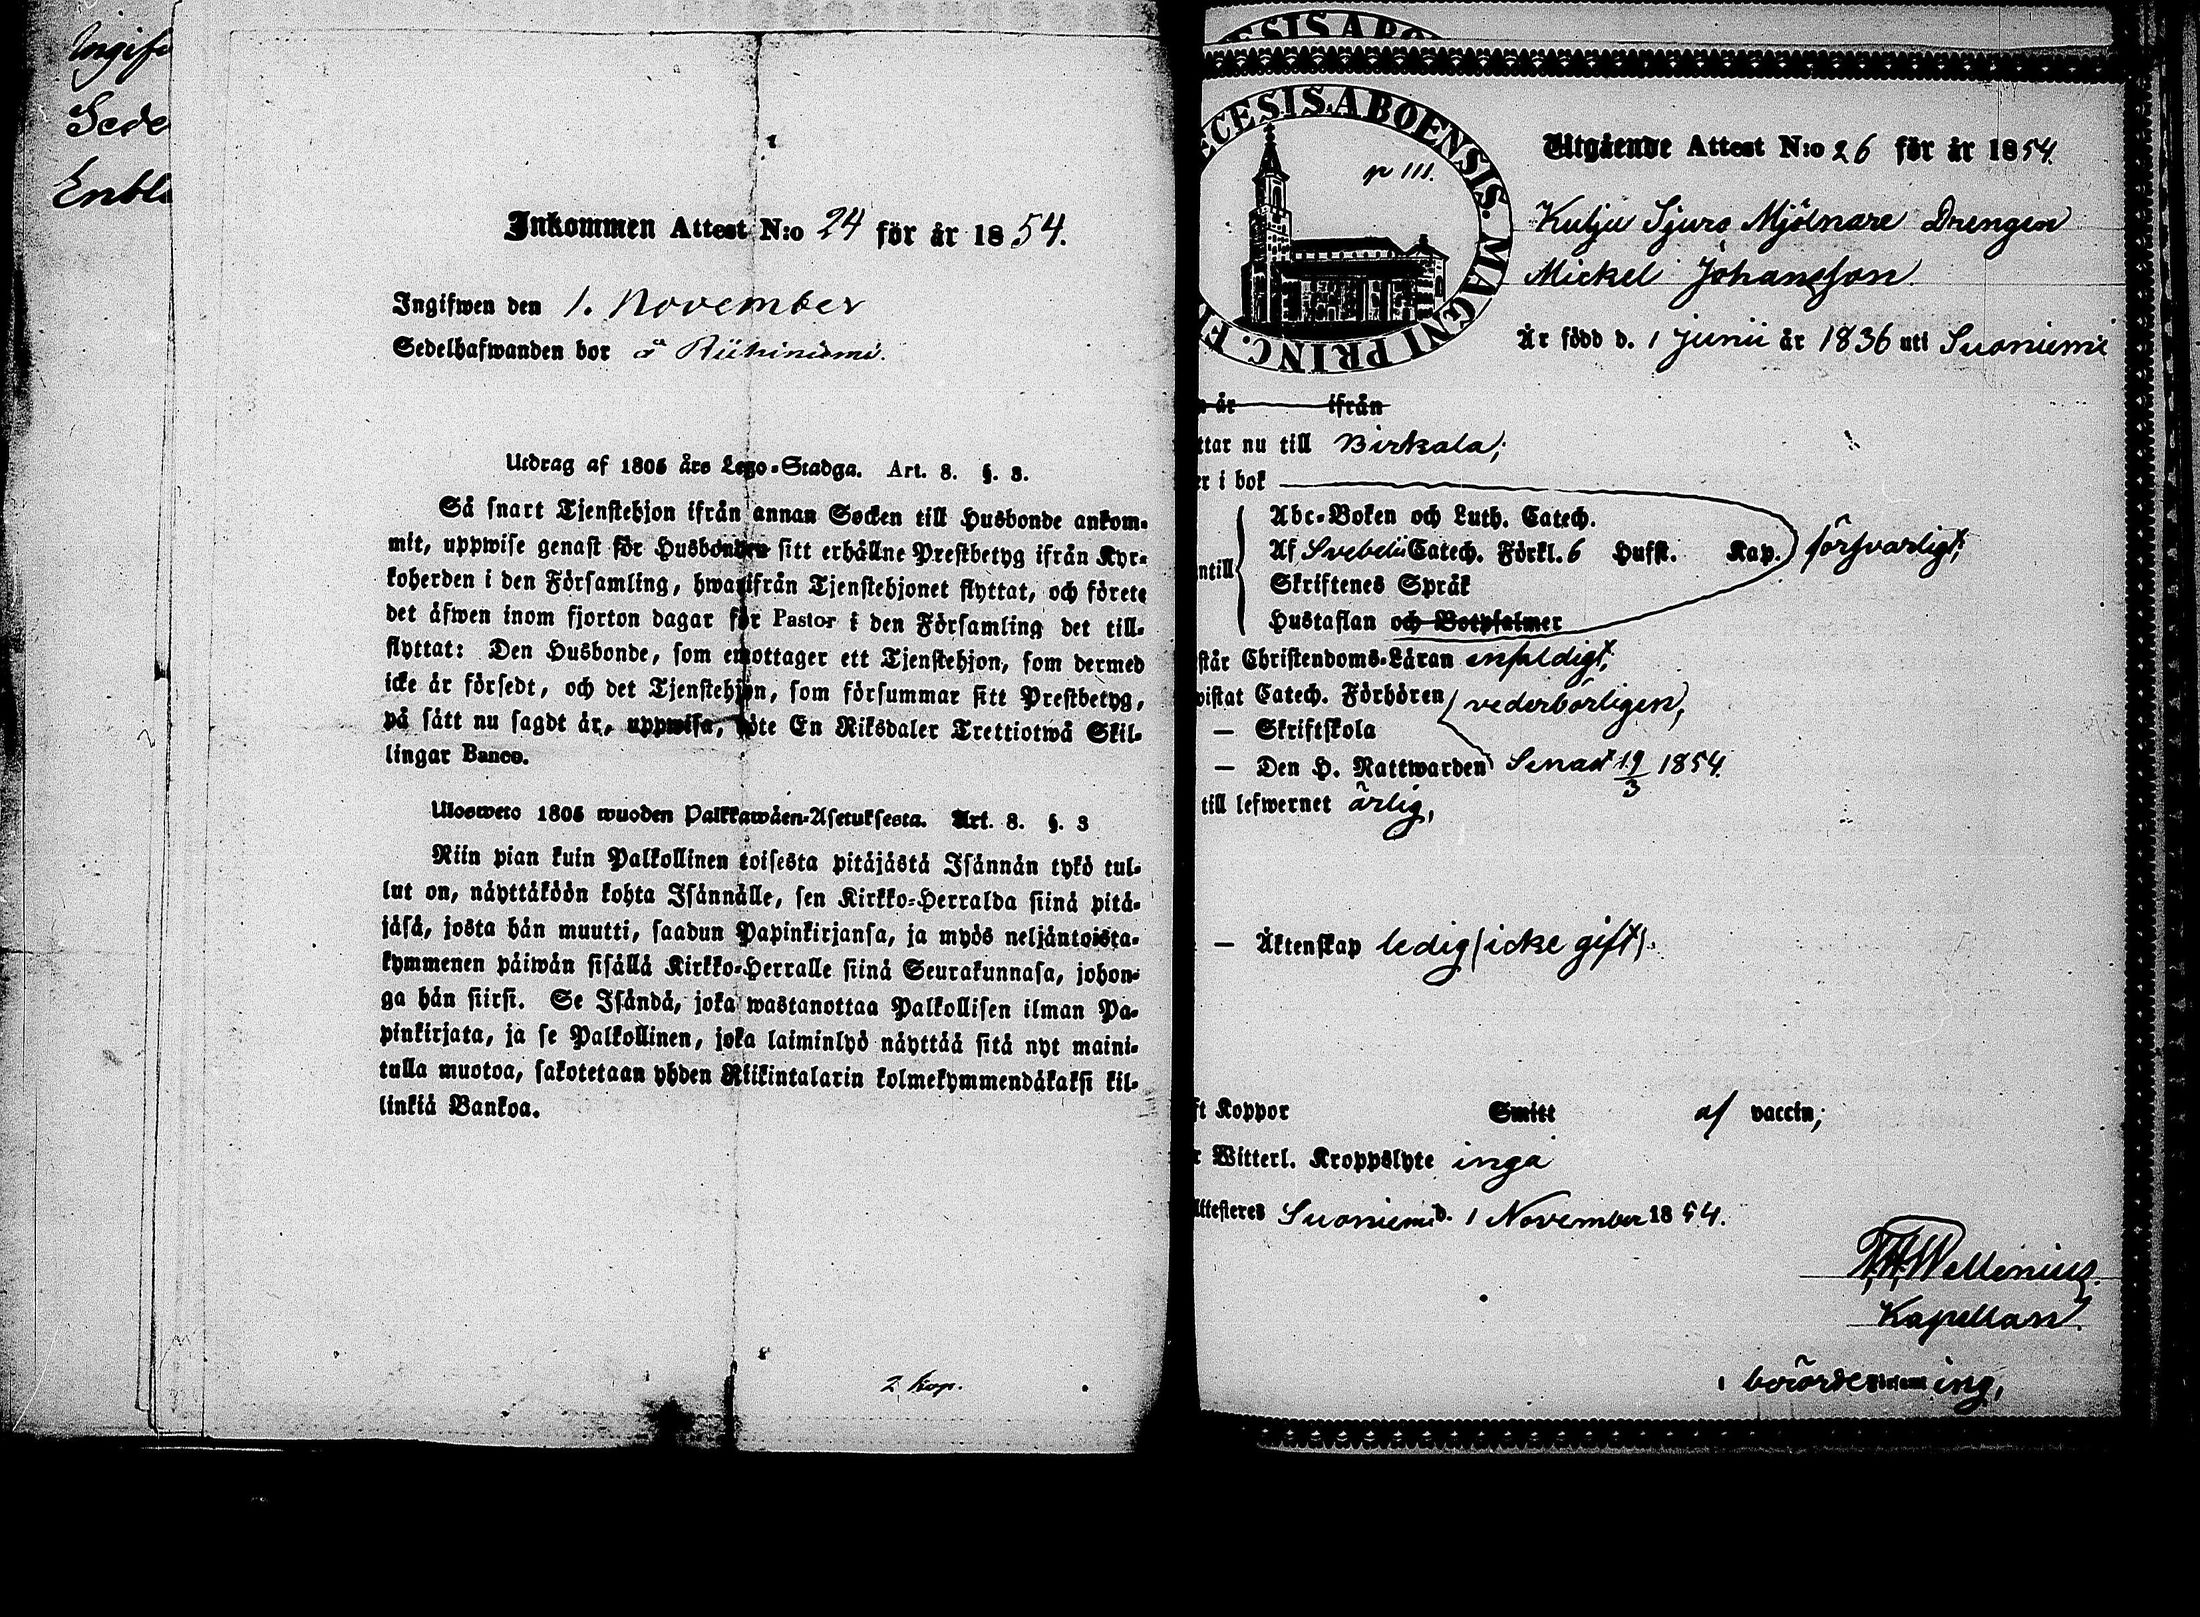 Ingifw
Sede
Enbl
Inkommen Attest N:o 24 för år 1854.
Ingifwen den 1. November
Sedelhafwanden bor å Riihiniemi.
Utdrag af 1805 års Lego-Stadga. Art. 8. §. 3.
Så snart Tjenstehjon ifrån annan Socken till Husbonde ankom-
mit, uppwise genast för Husbonden sitt erhållne Prestbetyg ifrån Kyr-
koherden i den Församling, hwarifrån Tjenstehjonet flyttat, och förete
det äfwen inom fjorton dagar för Pastor i den Församling det till-
flyttat: Den Husbonde, som emottager ett Tjenstehjon, som dermed
icke är försedt, och det Tjenstehjon, som försummar sitt Prestbetyg,
på sätt nu sagdt är, uppwisa, böte En Riksdaler Trettiotwå Skil-
lingar Banco.
Ulosweto 1805 wuoden Palkkawäen-Asetuksesta. Art. 8. §. 3
Niin pian kuin Palkollinen toisesta pitäjästä Isännän tykö tul-
lut on, näyttäköön kohta Isännälle, sen Kirkko-Herralda siinä pitä-
jäsä, josta hän muutti, saadun Papinkirjansa, ja myös neljäntoista-
kymmenen päiwän sisällä Kirkko-Herralle siinä Seurakunnasa, johon-
ga hän siirsi. Se Isändä, joka wastanottaa Palkollisen ilman Pa-
pinkirjata, ja se Palkollinen, joka laiminlyö näyttää sitä nyt maini-
tulla muotoa, sakotetaan yhden Riikintalarin kolmekymmendäkaksi kil-
linkiä Bankoa.
2 kop.
ECESIS.ABOENSIS. MAGNI PRINC. F
p 111.
Utgående Attest N:o 26 för år 1854.
Kulju Sjurs Mjölnare Drengen
Mickel Johansson.
Är född d. 1 Junii år 1836 uti Suoniemi
år ifrån
ttar nu till Birkala;
er i bok
Abc-Boken och Luth. Catech.
Af Svebelii Catech. Förkl. 6 Hufst. Kap. försvarligt,
ntill
Skriftenes Språk
Hustaflan och Botpsalmer
står Christendoms-Läran enfaldigt,
wistat Catech. Förhören vederbörligen,
— Skriftskola
— Den H. Nattwarden Senast 19/3 1854.
till lefwernet ärlig,
— Äktenskap ledig (icke gift).
ft Koppor Smitt af vaccin;
r Witterl. Kroppslyte inga
Attesteres Suoniemi d. 1 November 1854.
Wellenius.
Kapellan.
i berörde Församling,